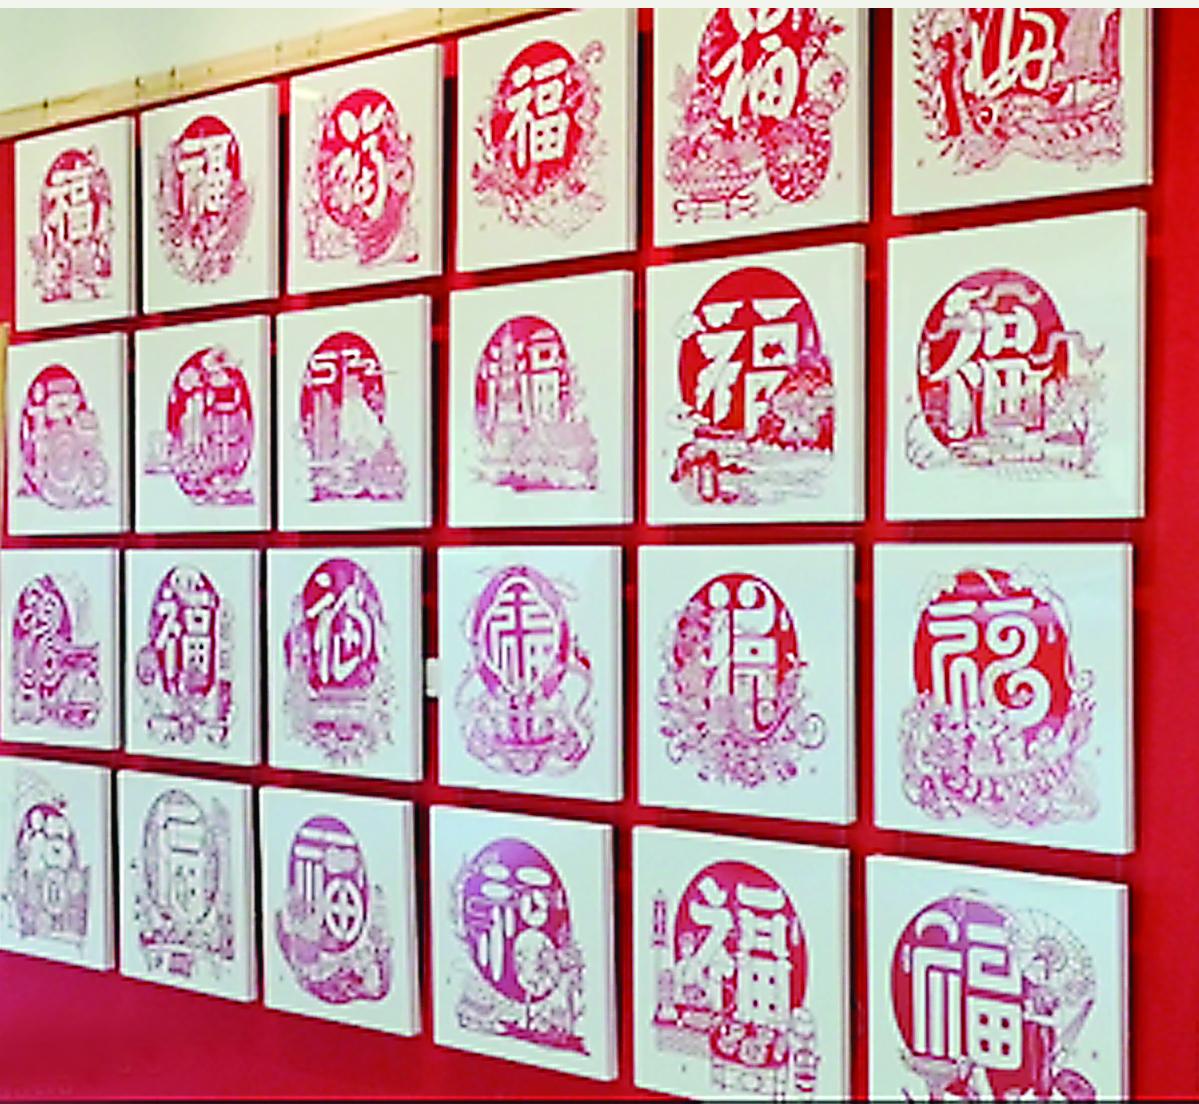 福 福 福 福 福
福 福 福 福
福 福 福 福 福
福 福 福 福 福 福